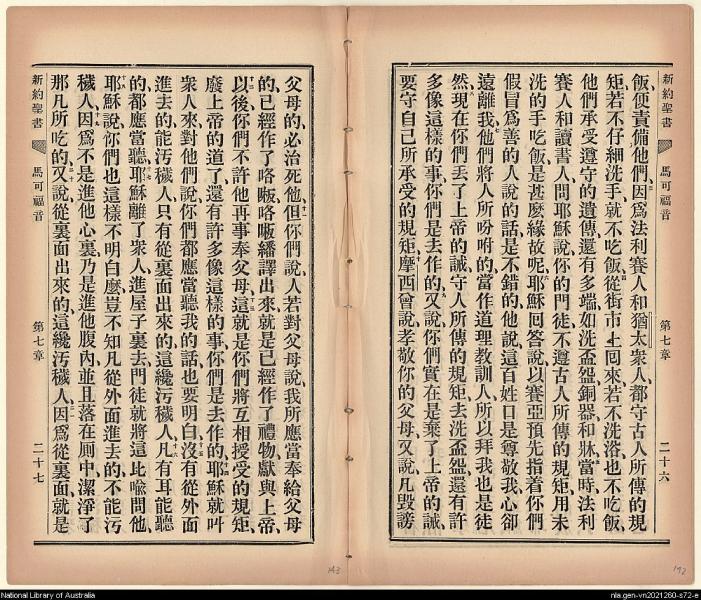 新約聖書 馬可福音 第七章 二十六
飯、便責備他們、因爲法利賽人和猶太衆人、都守古人所傳的規
矩、若不仔細洗手、就不吃飯、從街市上回來、若不洗浴、也不吃飯、
他們承受遵守的遺傳、還有多端、如洗盃盌銅器和牀、當時法利
賽人和讀書人問耶穌說、你的門徒不遵古人所傳的規矩、用未
洗的手吃飯、是甚麽緣故呢、耶穌回答說、以賽亞預先指着你們
假冒爲善的人說的話、是不錯的、他說、這百姓口是尊敬我、心卻
遠離我、他們將人所吩咐的、當作道理教訓人、所以拜我也是徒
然、現在你們丟了上帝的誡、守人所傳的規矩、去洗盃盌、還有許
多像這樣的事、你們是去作的、又說、你們實在是棄了上帝的誡、
要守自己所承受的規矩、摩西曾說、孝敬你的父母、又說、凡毀謗
父母的、必治死他、但你們說、人若對父母說、我所應當奉給父母
的、已經作了咯𠺕咯𠺕繙譯出來、就是已經作了禮物獻與上帝、
以後你們不許他再事奉父母、這就是你們將互相授受的規矩、
廢上帝的道了、還有許多像這樣的事、你們是去作的、耶穌就叫
衆人來、對他們說、你們都應當聽我的話、也要明白、沒有從外面
進去的、能汚穢人、只有從裏面出來的、這纔汚穢人、凡有耳能聽
的、都應當聽、耶穌離了衆人、進屋子裏去、門徒就將這比喩問他、
耶穌說、你們也這樣不明白麽、豈不知凡從外面進去的、不能汚
穢人、因爲不是進他心裏、乃是進他腹內、並且落在厠中、潔淨了
那凡所吃的、又說、從裏面出來的、這纔汚穢人、因爲從裏面、就是
新約聖書 馬可福音 第七章 二十七
143
142
National Library of Australia
nla.gen-vn2021260-s72-e